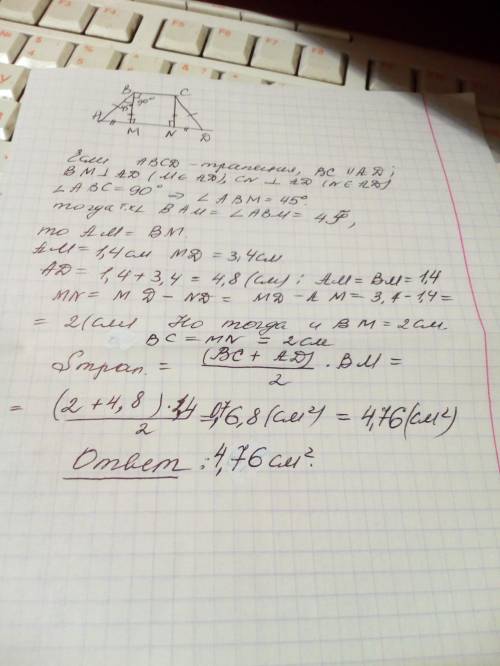 B 90° C
45°
A M N D
Если ABCD - трапеция, BC || AD;
BM ⊥ AD (M ∈ AD), CN ⊥ AD (N ∈ AD)
∠ABC = 90° ⇒ ∠ABM = 45°.
тогда т.к ∠BAM = ∠ABM = 45°,
то AM = BM.
AM = 1,4 см MD = 3,4 см
AD = 1,4 + 3,4 = 4,8 (см); AM = BM = 1,4
MN = MD - ND = MD - AM = 3,4 - 1,4 =
= 2 (см) Но тогда и BM = 2 см.
BC = MN = 2 см
Sтрап. = (BC + AD)/2 · BM =
= (2 + 4,8) · 1,4/2 = 0,7 · 6,8 (см²) = 4,76 (см²)
Ответ: 4,76 см².